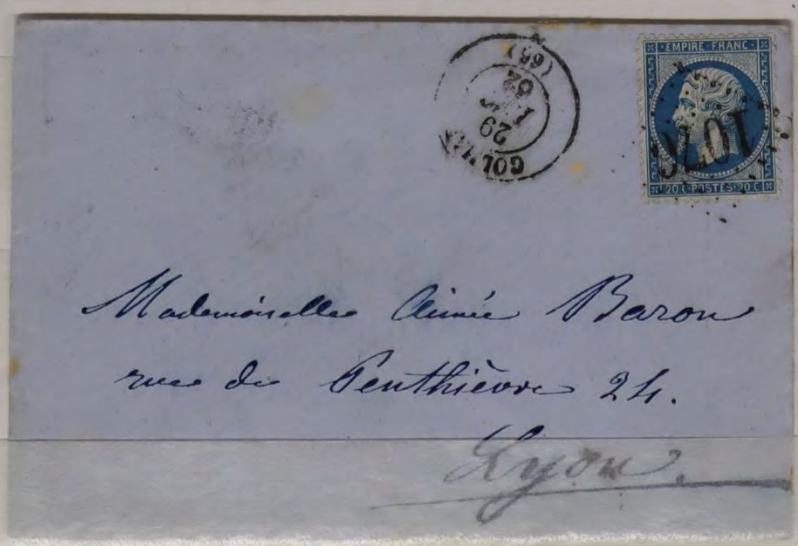 (66)
29
EMPIRE FRANC
20 C POSTES 20 C
Mademoiselle Aimée Baron
rue de Penthièvre 24.
Lyon.